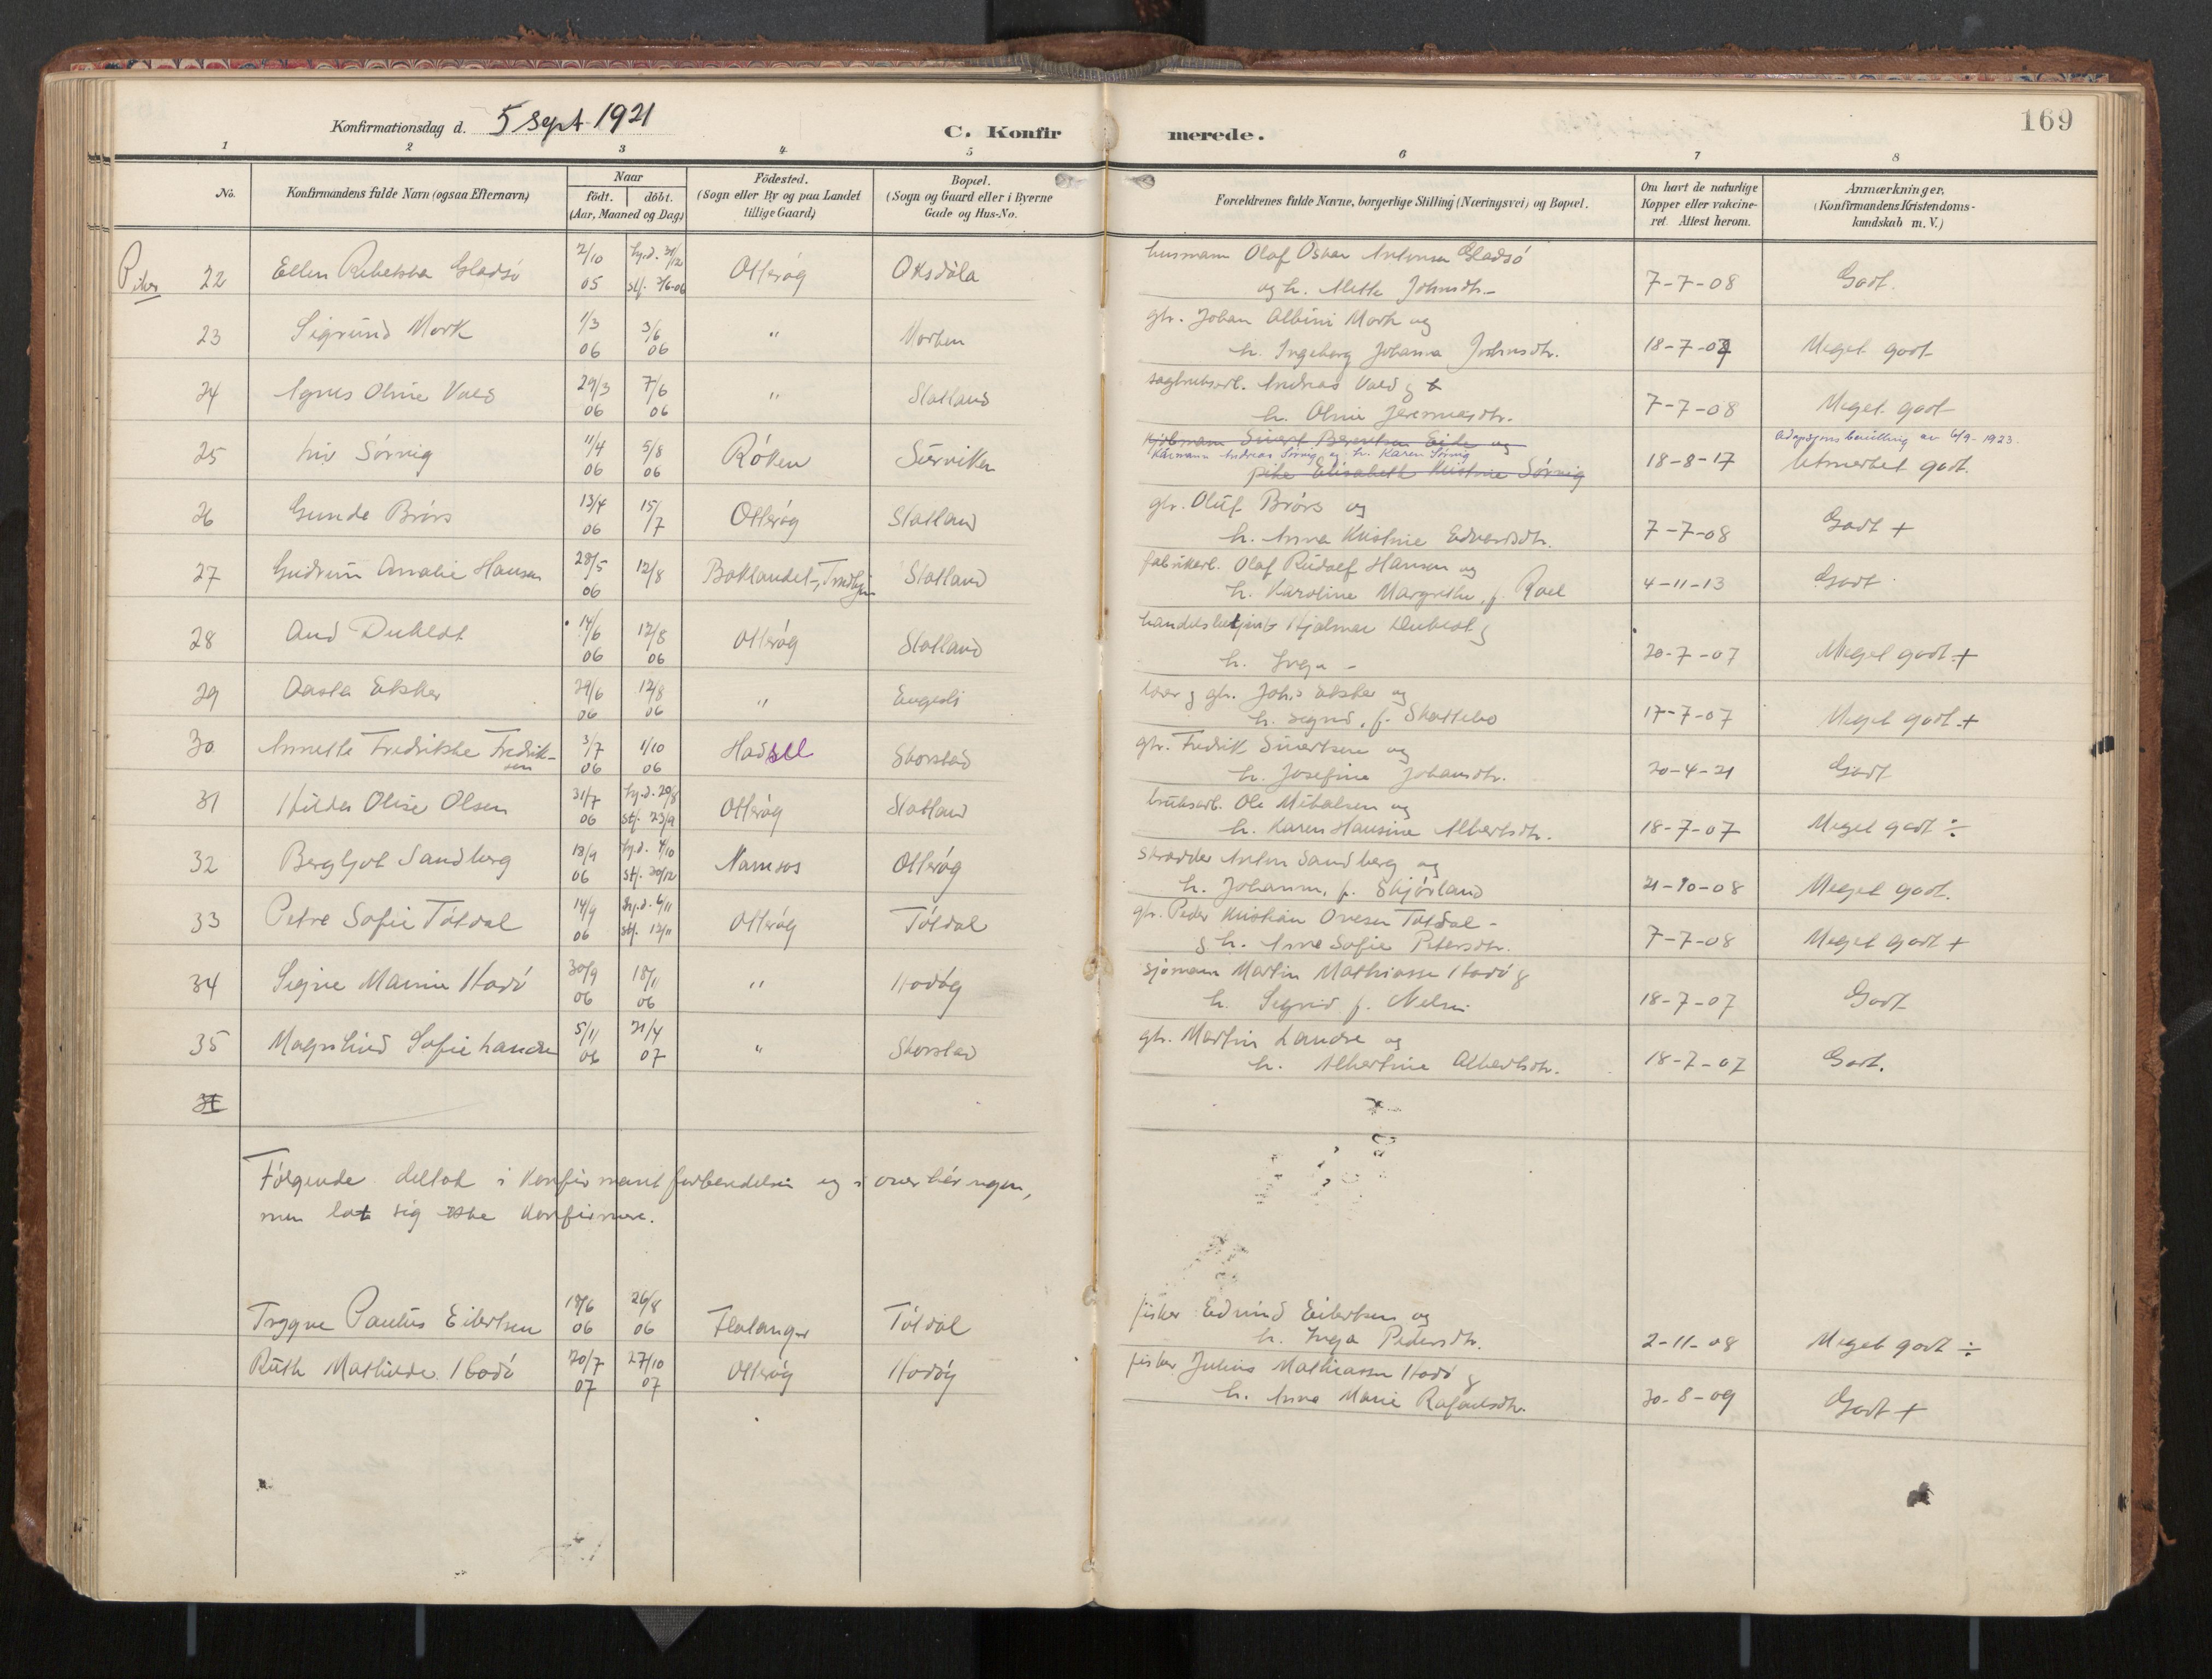 169
Konfirmationsdag d. 5 sept 1921
C. Konfirmerede.
1 2 3 4 5 6 7 8
No. Konfirmandens fulde Navn (ogsaa Efternavn) Naar födt. döbt. (Aar, Maaned og Dag) Födested. (Sogn eller By og paa Landet tillige Gaard) Bopæl. (Sogn og Gaard eller i Byerne Gade og Hus-No. Forældrenes fulde Navne, borgerlige Stilling (Næringsvei) og Bopæl. Om havt de naturlige Kopper eller vakcineret. Attest herom. Anmærkninger, (Konfirmandens Kristendomskundskab m. V.)
Piker 22 Ellen Rebekka Gladsö 2/10 05 hj.d. 31/12 stf. 3/6-06 Otteröy Oksdöla husmann Olaf Oskar Antonsen Gladsö
og h. Alette Johnsdtr. 7-7-08 Godt.
23 Sigrund Mork 1/3 06 3/6 06 " Morken gbr. Johan Albini Mork og
h. Ingeborg Johanna Johnsdtr. 18-7-07 Meget godt
24 Agnes Oline Vald 29/3 06 7/6 06 " Statland sagbruksarb. Andreas Vald &
h. Oline Jeremiasdtr. 7-7-08 Meget godt
25 Liv Sörvig 11/4 06 5/8 06 Röken Sörviken Elisabeth Kristine Sörvig
Kårmann Andreas Sörvig og h. Karen Sörvig 18-8-17 Adopsjons bevilling av 6/9-1923.
Utmerket godt.
26 Gunda Brörs 13/4 06 15/7 Otteröy Statland gbr. Oluf Brörs og
h. Anna Kristine Edvardsdtr. 7-7-08 Godt +
27 Gudrun Amalie Hansen 28/5 06 12/8 Baklandet, Trondhjem Statland fabrikarb. Olaf Rudolf Hansen og
h. Karoline Margrethe, f. 4-11-13 Godt
28 Aud Duklædt 14/6 06 12/8 06 Otteröy Statland Hjalmar &
h. Inga - 20-7-07 Meget godt +
29 Aasta Ekker 29/6 06 12/8 06 " Engesli gbr. Johs Ekker og
h. Sigrid, f. 17-7-07 Meget godt +
30 Annette Fredrikke Fredriksen 3/7 06 1/10 06 Hadsel Skorstad gbr. Fredrik Sivertsen og
h. Josefine Johansdtr. 20-4-21 Godt
31 Hilda Olise Olsen 31/7 06 hj.d. 20/8 stf. 23/9 Otteröy Statland bruksarb. Ole Mikalsen og
h. Karen Hansine Albertsdtr. 18-7-07 Meget godt ÷
32 Bergljot Sandberg 18/9 06 hj.d. 4/10 stf. 30/12 Namsos Otteröy skrædder Anton Sandberg og
h. Johanna, f. Skjörland 21-10-08 Meget godt.
33 Petra Sofie Tötdal 14/9 06 hj.d. 6/11 stf. 12/11 Otteröy Tötdal gbr. Peder Kristian Ovesen Tötdal
& h. Anna Sofie Petersdtr. 7-7-08 Meget godt +
34 Signe Marie Hodö 30/9 06 18/11 06 " Hodöy sjömann Martin Mathiassen Hodö &
h. Sigrid f. Nelson 18-7-07 Godt
35 Magnhild Sofie Lande 5/11 06 21/4 07 " Skorstad gbr. Martin Lande og
h. Albertine Albertsdtr. 18-7-07 Godt.
Fölgende deltok i konfirmantforberedelsen og i overhöringen,
men lot sig ikke konfirmere.
Trygve Paulus Eilertsen 18/6 06 26/8 06 Flatanger Tötdal fisker Edvind Eilertsen og
h. Inga Pedersdtr. 2-11-08 Meget godt ÷
Ruth Mathilde Hodö 20/7 07 27/10 07 Otteröy Hodöy fisker Julius Mathiassen Hodö &
h. Anna Marie Rafaelsdtr. 30-8-09 Godt +